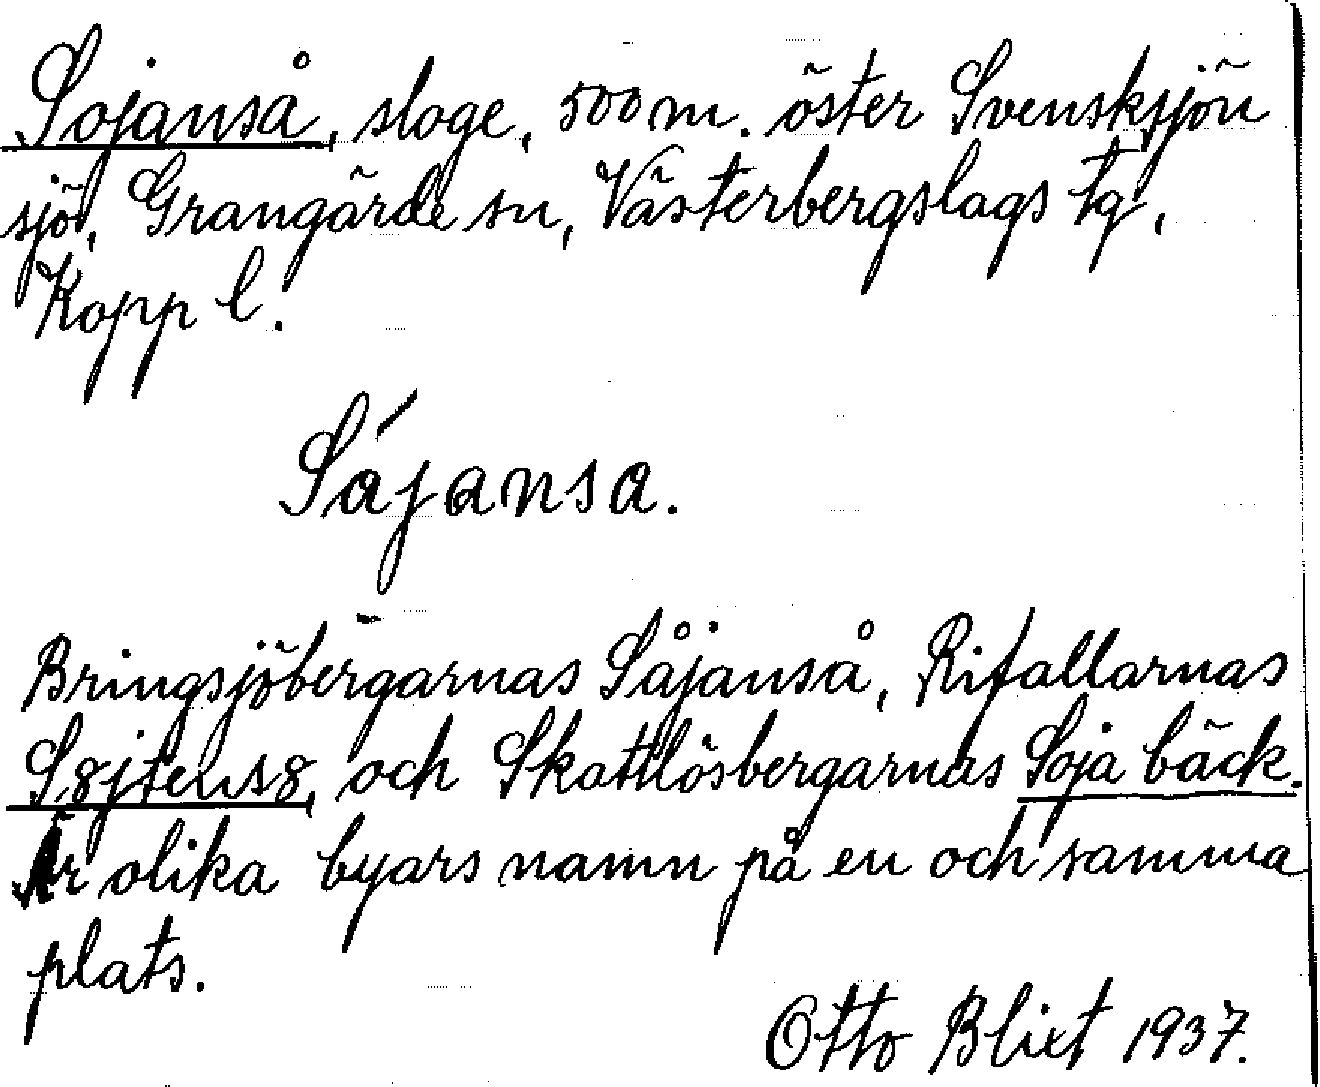 Sojanså, sloge, 500 m. öster Svensksjön
sjö, Grangärde sn, Västerbergslags tg,
Kopp l.
Sájansa.
Bringsjöbergarnas Såjanså, Rifallarnas
S8jtens8, och Skattlösbergarnas Soja bäck.
Är olika byars namn på en och samma
plats.
Otto Blixt 1937.